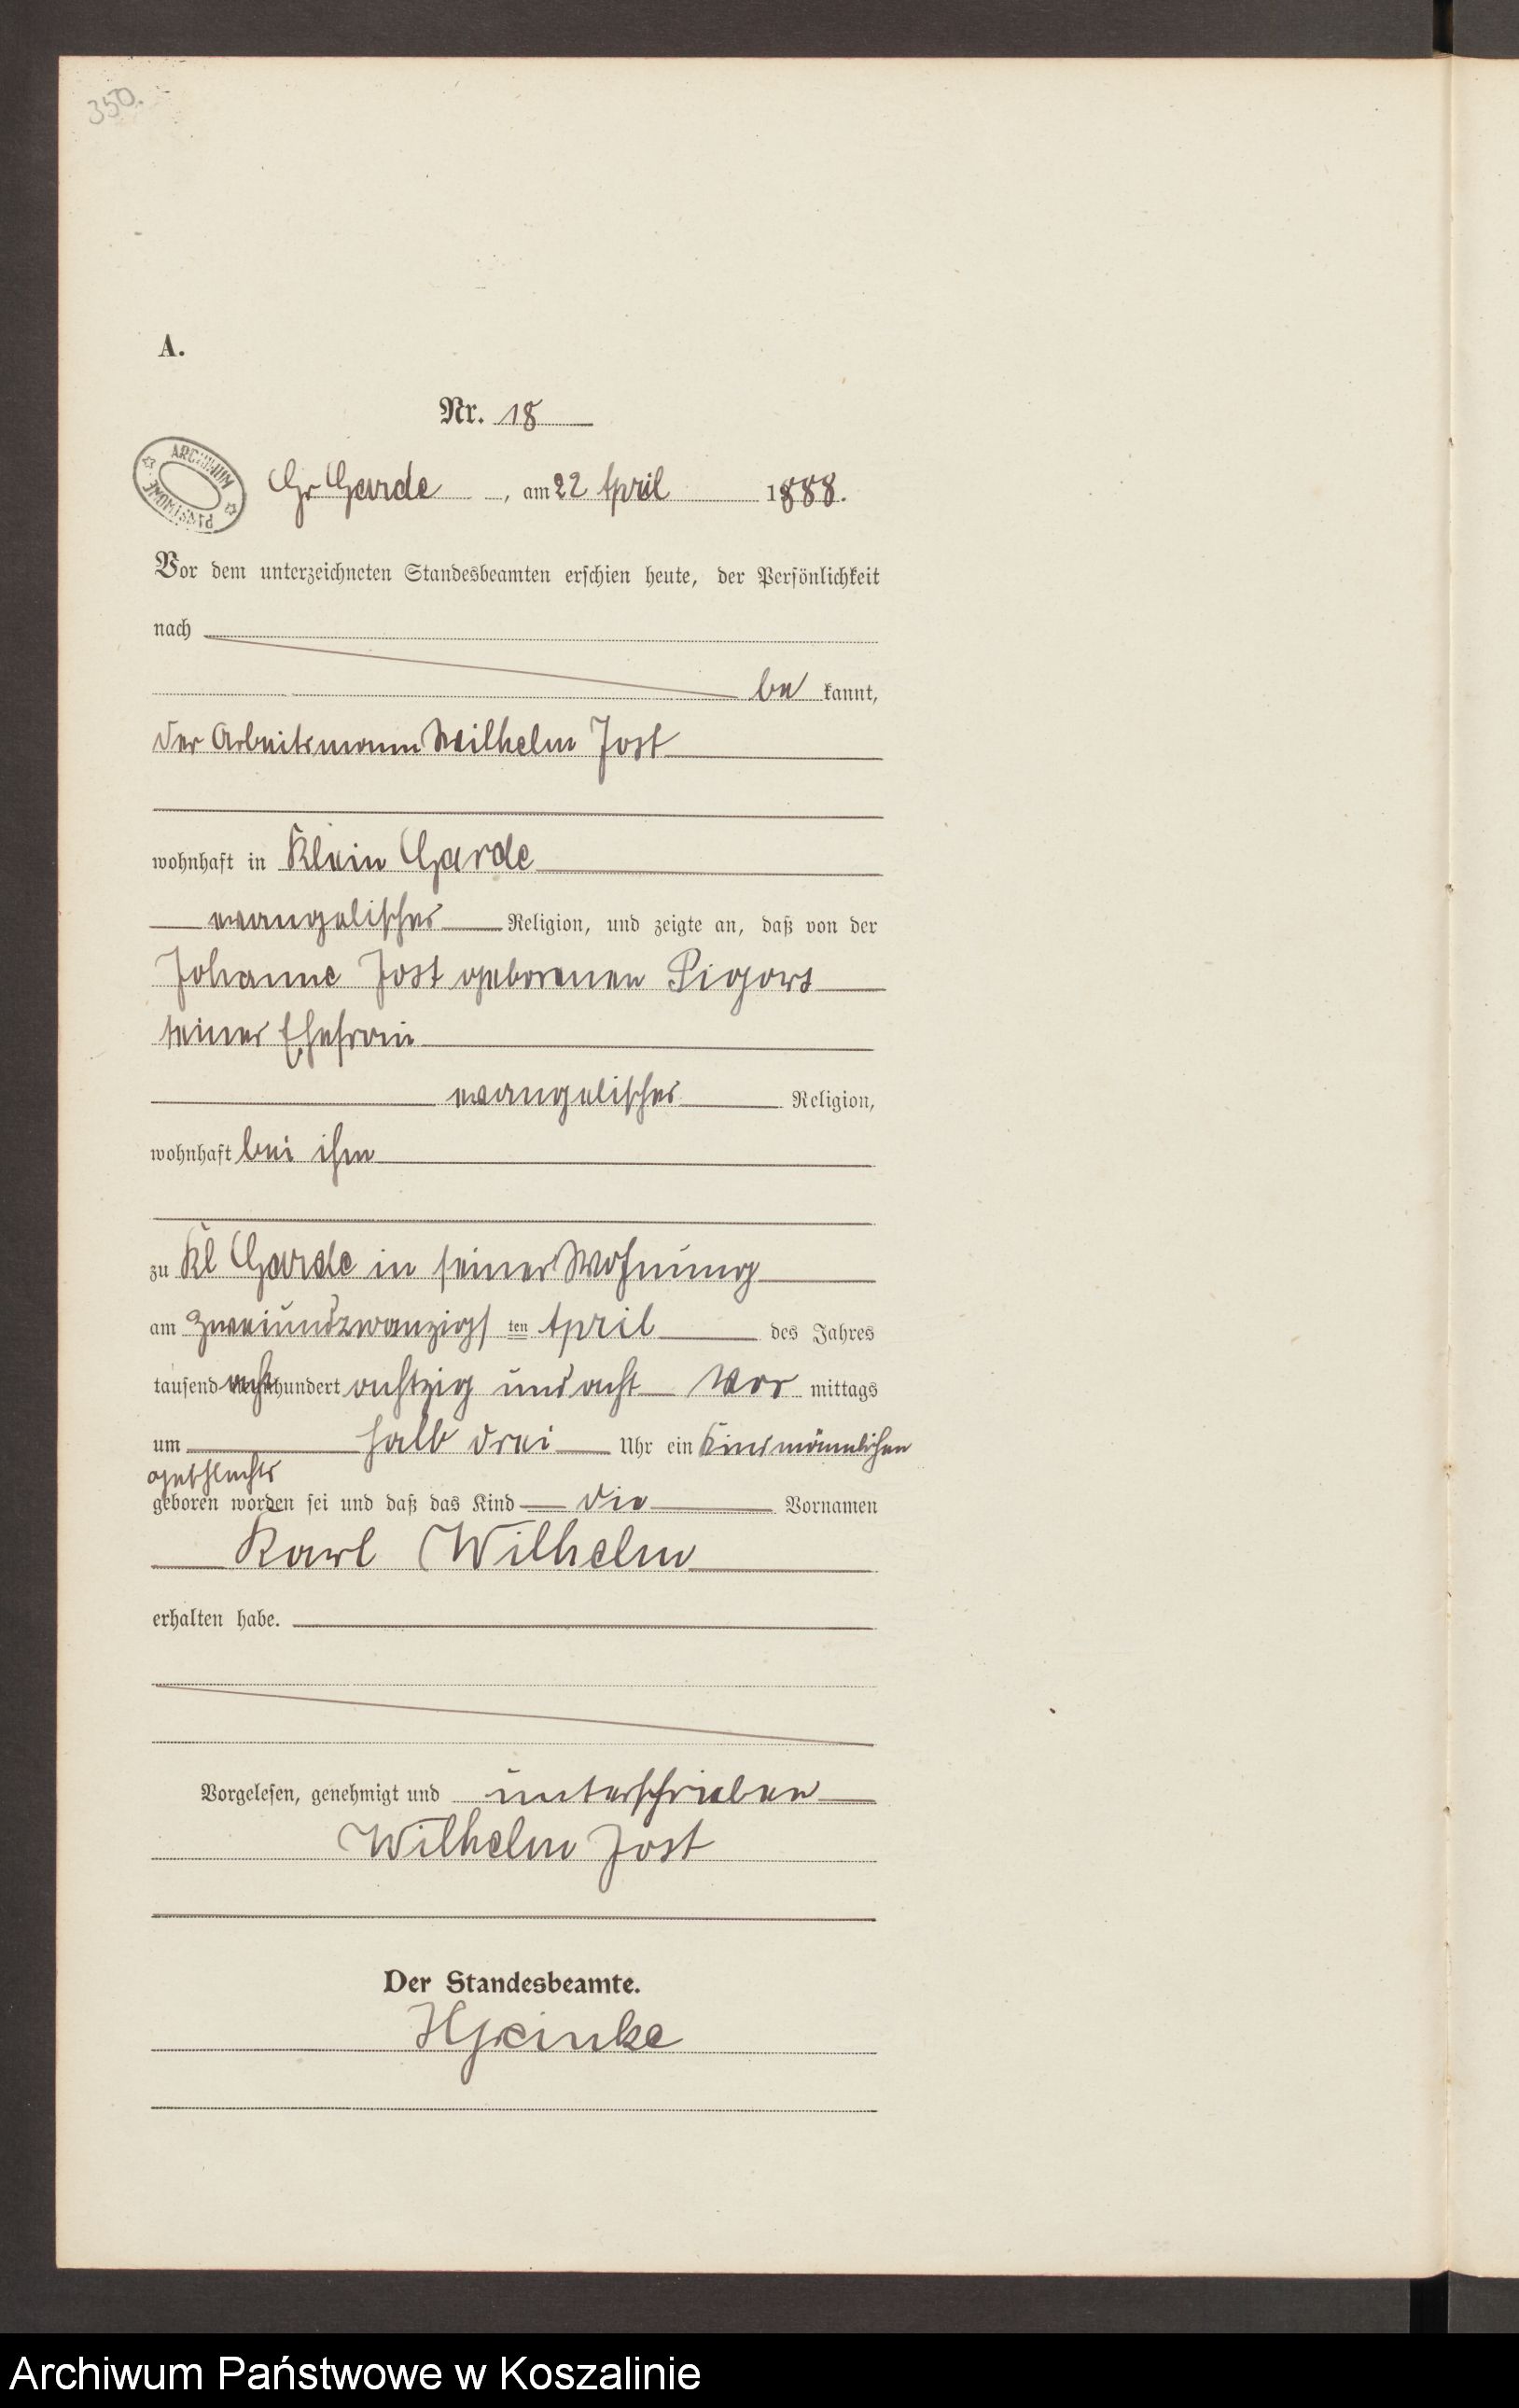 350.
A.
Nr. 18
ARCHIWUM PAŃSTWOWE
Gr Garde, am 22 April 1888.
Vor dem unterzeichneten Standesbeamten erschien heute, der Persönlichkeit
nach
be kannt,
der Arbeitsmann Wilhelm Jost
wohnhaft in Klein Garde
evangelischer Religion, und zeigte an, daß von der
Johanne Jost geborenen Pigors
seiner Ehefrau
evangelischer Religion,
wohnhaft bei ihm
zu Kl Garde in seiner Wohnung
am zweiundzwanzigs ten April des Jahres
tausend acht hundert achtzig und acht Vor mittags
um halb drei Uhr ein Kind männlichen
Geschlechts
geboren worden sei und daß das Kind die Vornamen
Karl Wilhelm
erhalten habe.
Vorgelesen, genehmigt und unterschrieben
Wilhelm Jost
Der Standesbeamte.
Archiwum Państwowe w Koszalinie